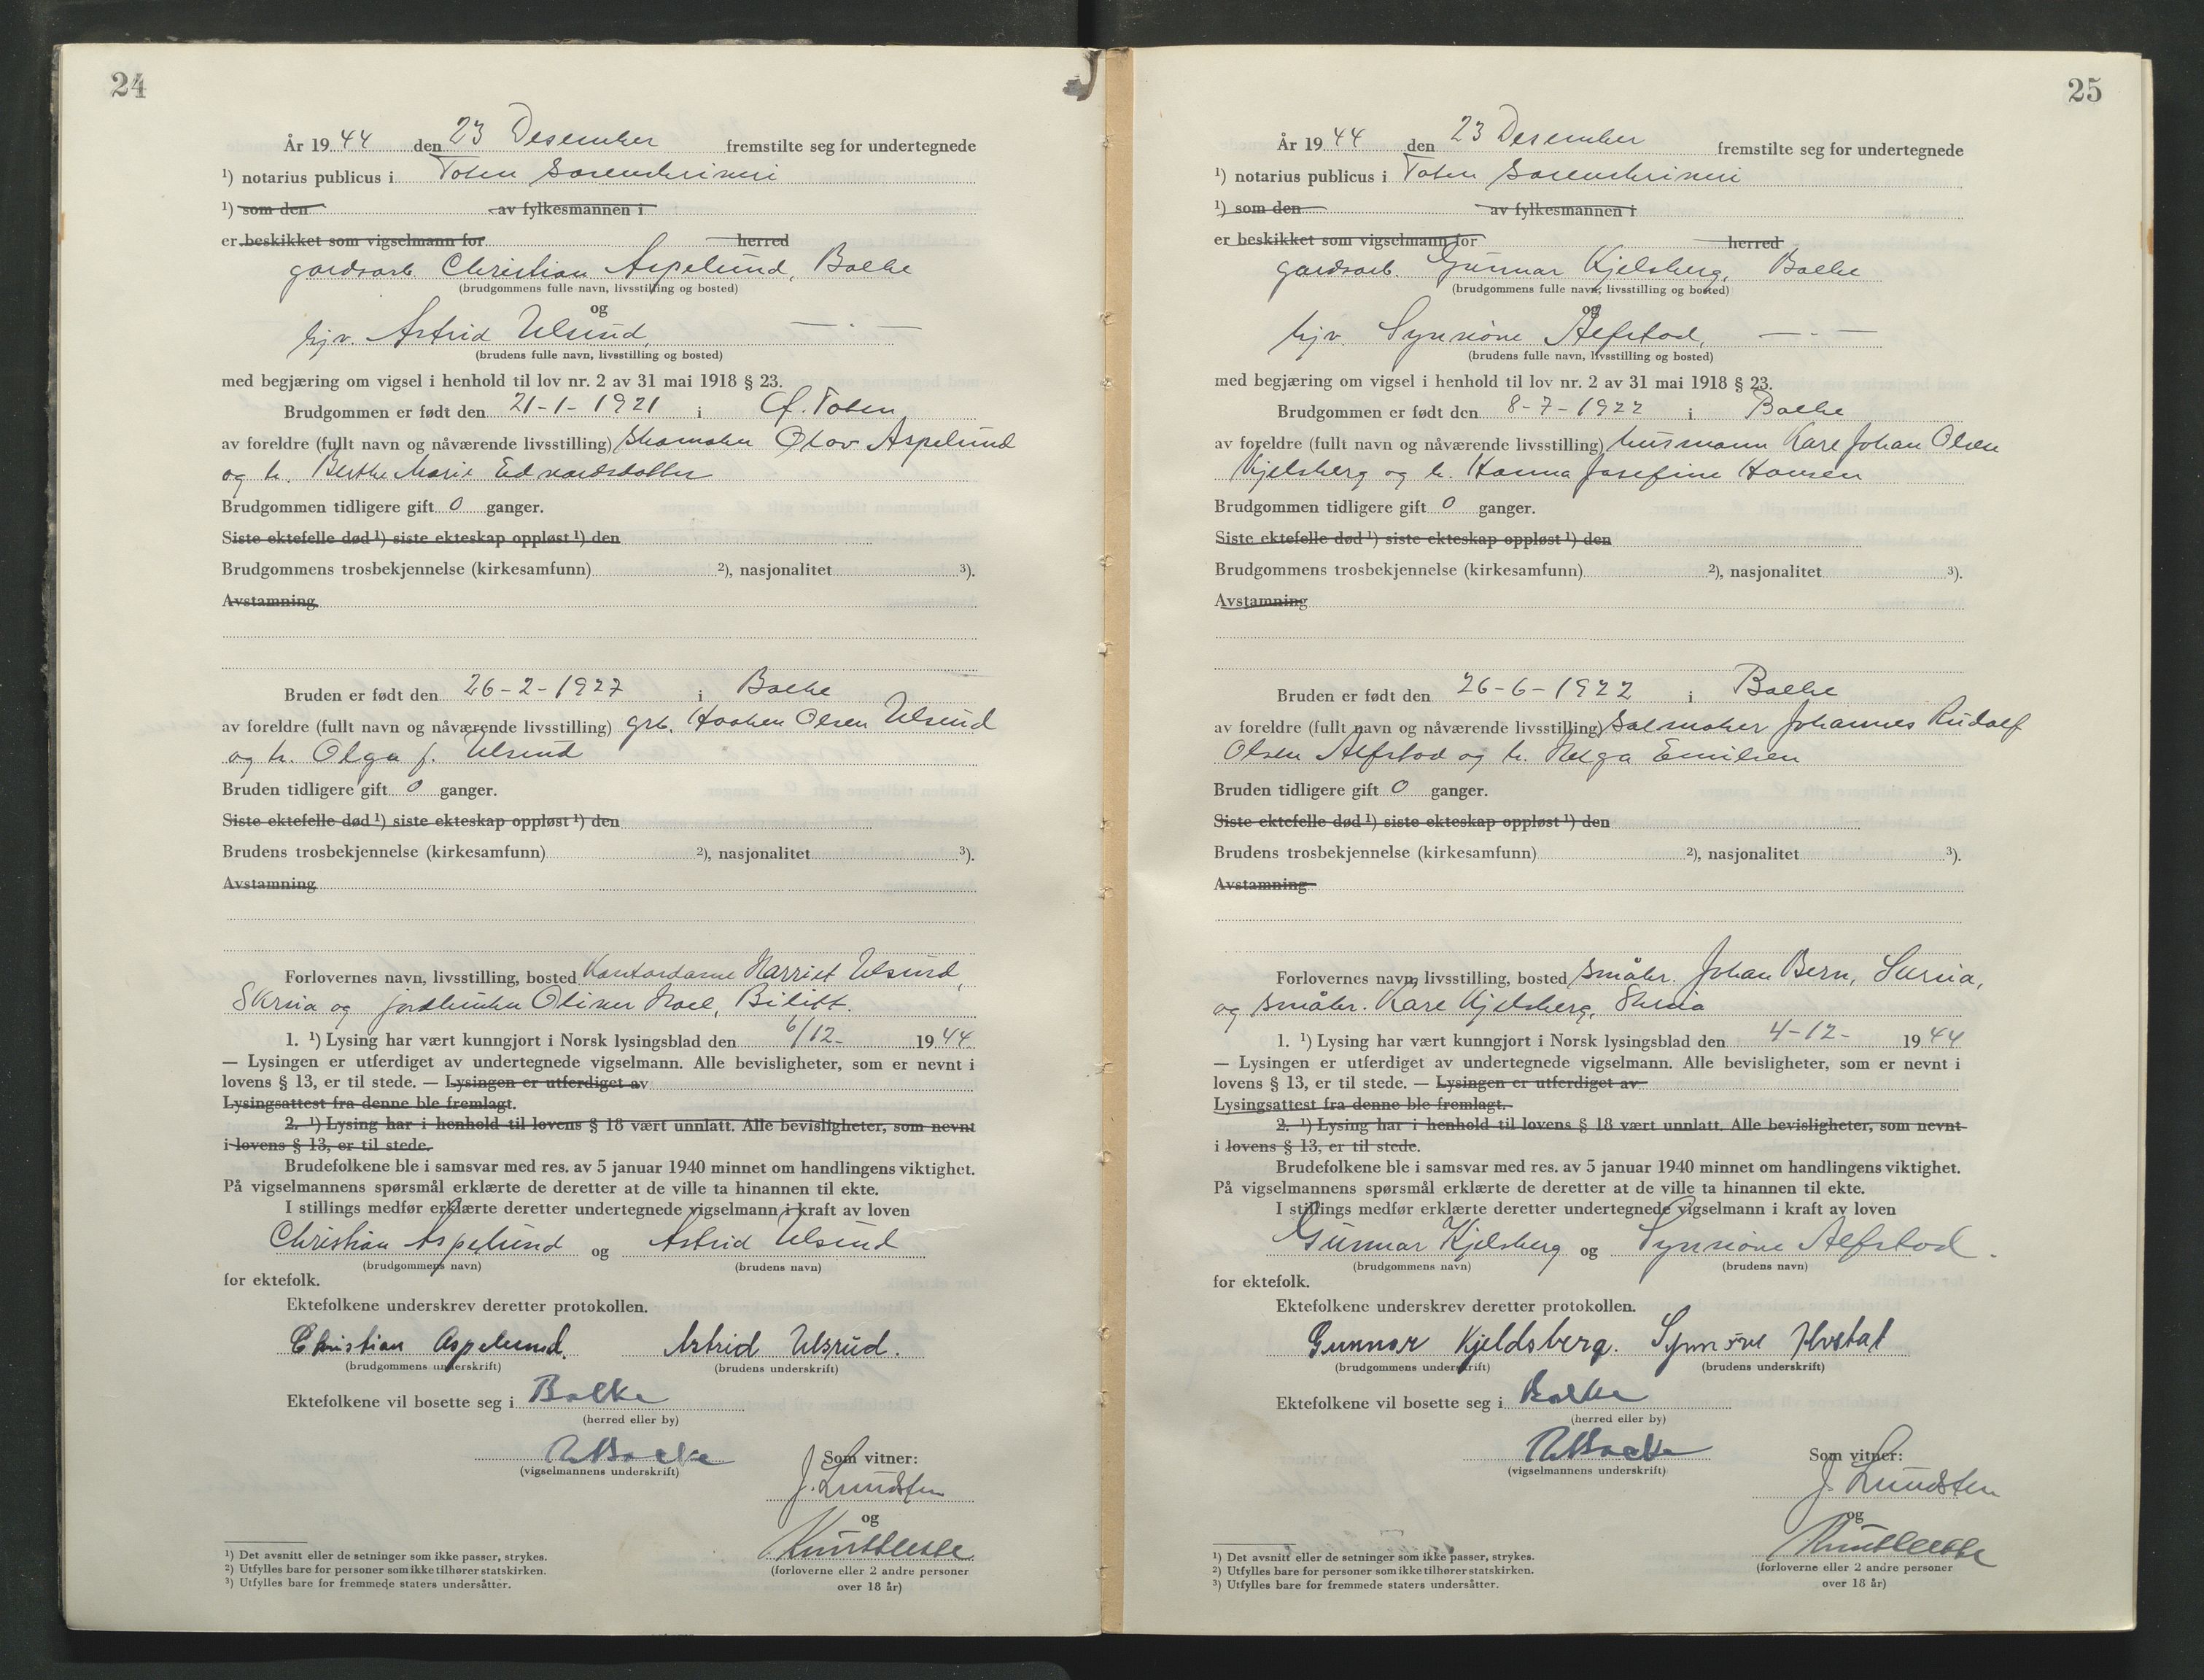 24
År 19 44 den 23 Desember fremstilte seg for undertegnede
¹) notarius publicus i Toten Sorenskriveri
¹) som den av fylkesmannen i
er beskikket som vigselmann for herred
gardsarb. Christian Aspelund, Balke
(brudgommens fulle navn, livsstilling og bosted)
og
hjv. Astrid Ulsrud, — . —
(brudens fulle navn, livsstilling og bosted)
med begjæring om vigsel i henhold til lov nr. 2 av 31 mai 1918 § 23.
Brudgommen er født den 21-1-1921 i Ø. Toten
av foreldre (fullt navn og nåværende livsstilling) skomaker Olav Aspelund
og h. Berthe Marie Edvardsdatter
Brudgommen tidligere gift 0 ganger.
Siste ektefelle død ¹) siste ekteskap oppløst ¹) den
Brudgommens trosbekjennelse (kirkesamfunn) ²), nasjonalitet ³).
Avstamning
Bruden er født den 26-2-1927 i Balke
av foreldre (fullt navn og nåværende livsstilling) grb. Haaken Olsen Ulsrud
og h. Olga f. Ulsrud
Bruden tidligere gift 0 ganger.
Siste ektefelle død ¹) siste ekteskap oppløst ¹) den
Brudens trosbekjennelse (kirkesamfunn) ²), nasjonalitet ³).
Avstamning
Forlovernes navn, livsstilling, bosted Kontordame Harriet Ulsrud,
Skreia og jordbruker Oliver Hoel, Bilitt.
1. ¹) Lysing har vært kunngjort i Norsk lysingsblad den 6/12- 19 44
— Lysingen er utferdiget av undertegnede vigselmann. Alle bevisligheter, som er nevnt i
lovens § 13, er til stede. — Lysingen er utferdiget av
Lysingsattest fra denne ble fremlagt.
2. ¹) Lysing har i henhold til lovens § 18 vært unnlatt. Alle bevisligheter, som nevnt
i lovens § 13, er til stede.
Brudefolkene ble i samsvar med res. av 5 januar 1940 minnet om handlingens viktighet.
På vigselmannens spørsmål erklærte de deretter at de ville ta hinannen til ekte.
I stillings medfør erklærte deretter undertegnede vigselmann i kraft av loven
Christian Aspelund og Astrid Ulsrud
(brudgommens navn) (brudens navn)
for ektefolk.
Ektefolkene underskrev deretter protokollen.
Christian Aspelund. Astrid Ulsrud.
(brudgommens underskrift) (brudens underskrift)
Ektefolkene vil bosette seg i Balke
(herred eller by)
(vigselmannens underskrift)
Som vitner:
J. Lundsten
og
(forloverne eller 2 andre personer
over 18 år)
¹) Det avsnitt eller de setninger som ikke passer, strykes.
²) Utfylles bare for personer som ikke tilhører statskirken.
³) Utfylles bare for fremmede staters undersåtter.
25
År 19 44 den 23 Desember fremstilte seg for undertegnede
¹) notarius publicus i Toten Sorenskriveri
¹) som den av fylkesmannen i
er beskikket som vigselmann for herred
gardsarb. Gunnar Kjelsberg, Balke
(brudgommens fulle navn, livsstilling og bosted)
og
hjv. Synnøve Alfstad, — . —
(brudens fulle navn, livsstilling og bosted)
med begjæring om vigsel i henhold til lov nr. 2 av 31 mai 1918 § 23.
Brudgommen er født den 8-7-1922 i Balke
av foreldre (fullt navn og nåværende livsstilling) husmann Kare Johan Olsen
Kjelsberg og h. Hanna Josefine Hansen
Brudgommen tidligere gift 0 ganger.
Siste ektefelle død ¹) siste ekteskap oppløst ¹) den
Brudgommens trosbekjennelse (kirkesamfunn) ²), nasjonalitet ³).
Avstamning
Bruden er født den 26-6-1922 i Balke
av foreldre (fullt navn og nåværende livsstilling) Salmaker Johannes Rudolf
Olsen Alfstad og h. Helga Emilsen
Bruden tidligere gift 0 ganger.
Siste ektefelle død ¹) siste ekteskap oppløst ¹) den
Brudens trosbekjennelse (kirkesamfunn) ²), nasjonalitet ³).
Avstamning
Forlovernes navn, livsstilling, bosted småbr. Johan Bern,
og småbr. Kare Kjelsberg, Skreia
1. ¹) Lysing har vært kunngjort i Norsk lysingsblad den 4-12- 19 44
— Lysingen er utferdiget av undertegnede vigselmann. Alle bevisligheter, som er nevnt i
lovens § 13, er til stede. — Lysingen er utferdiget av
Lysingsattest fra denne ble fremlagt.
2. ¹) Lysing har i henhold til lovens § 18 vært unnlatt. Alle bevisligheter, som nevnt
i lovens § 13, er til stede.
Brudefolkene ble i samsvar med res. av 5 januar 1940 minnet om handlingens viktighet.
På vigselmannens spørsmål erklærte de deretter at de ville ta hinannen til ekte.
I stillings medfør erklærte deretter undertegnede vigselmann i kraft av loven
Gunnar Kjelsberg og Synnøve Alfstad.
(brudgommens navn) (brudens navn)
for ektefolk.
Ektefolkene underskrev deretter protokollen.
Gunnar Kjeldsberg. Synnöve
(brudgommens underskrift) (brudens underskrift)
Ektefolkene vil bosette seg i Balke
(herred eller by)
(vigselmannens underskrift)
Som vitner:
J. Lundsten
og
(forloverne eller 2 andre personer
over 18 år)
¹) Det avsnitt eller de setninger som ikke passer, strykes.
²) Utfylles bare for personer som ikke tilhører statskirken.
³) Utfylles bare for fremmede staters undersåtter.